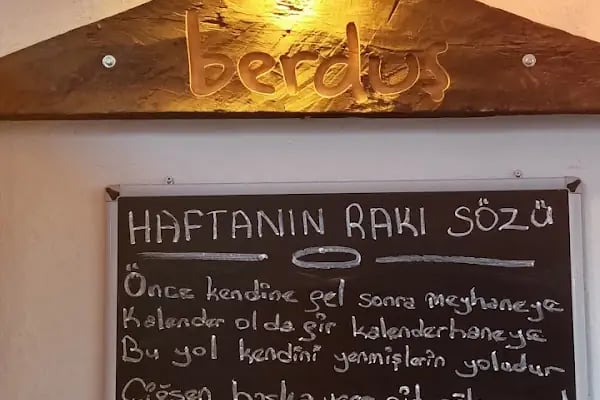 berduş
HAFTANIN RAKI SÖZÜ
Önce kendine gel sonra meyhaneye
Kalender ol da gir kalenderhaneye
Bu yol kendini yenmişlerin yoludur
Çiğsen başka yere git